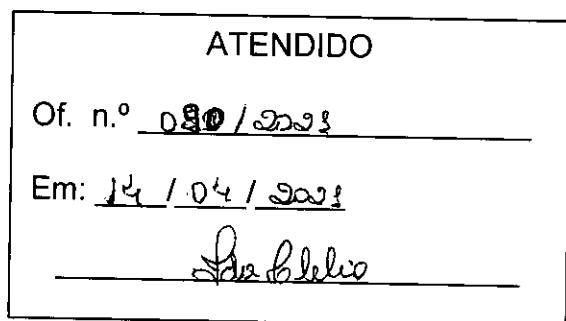 ATENDIDO
Of. n.º /2021
Em: 14 / 04 / 2021